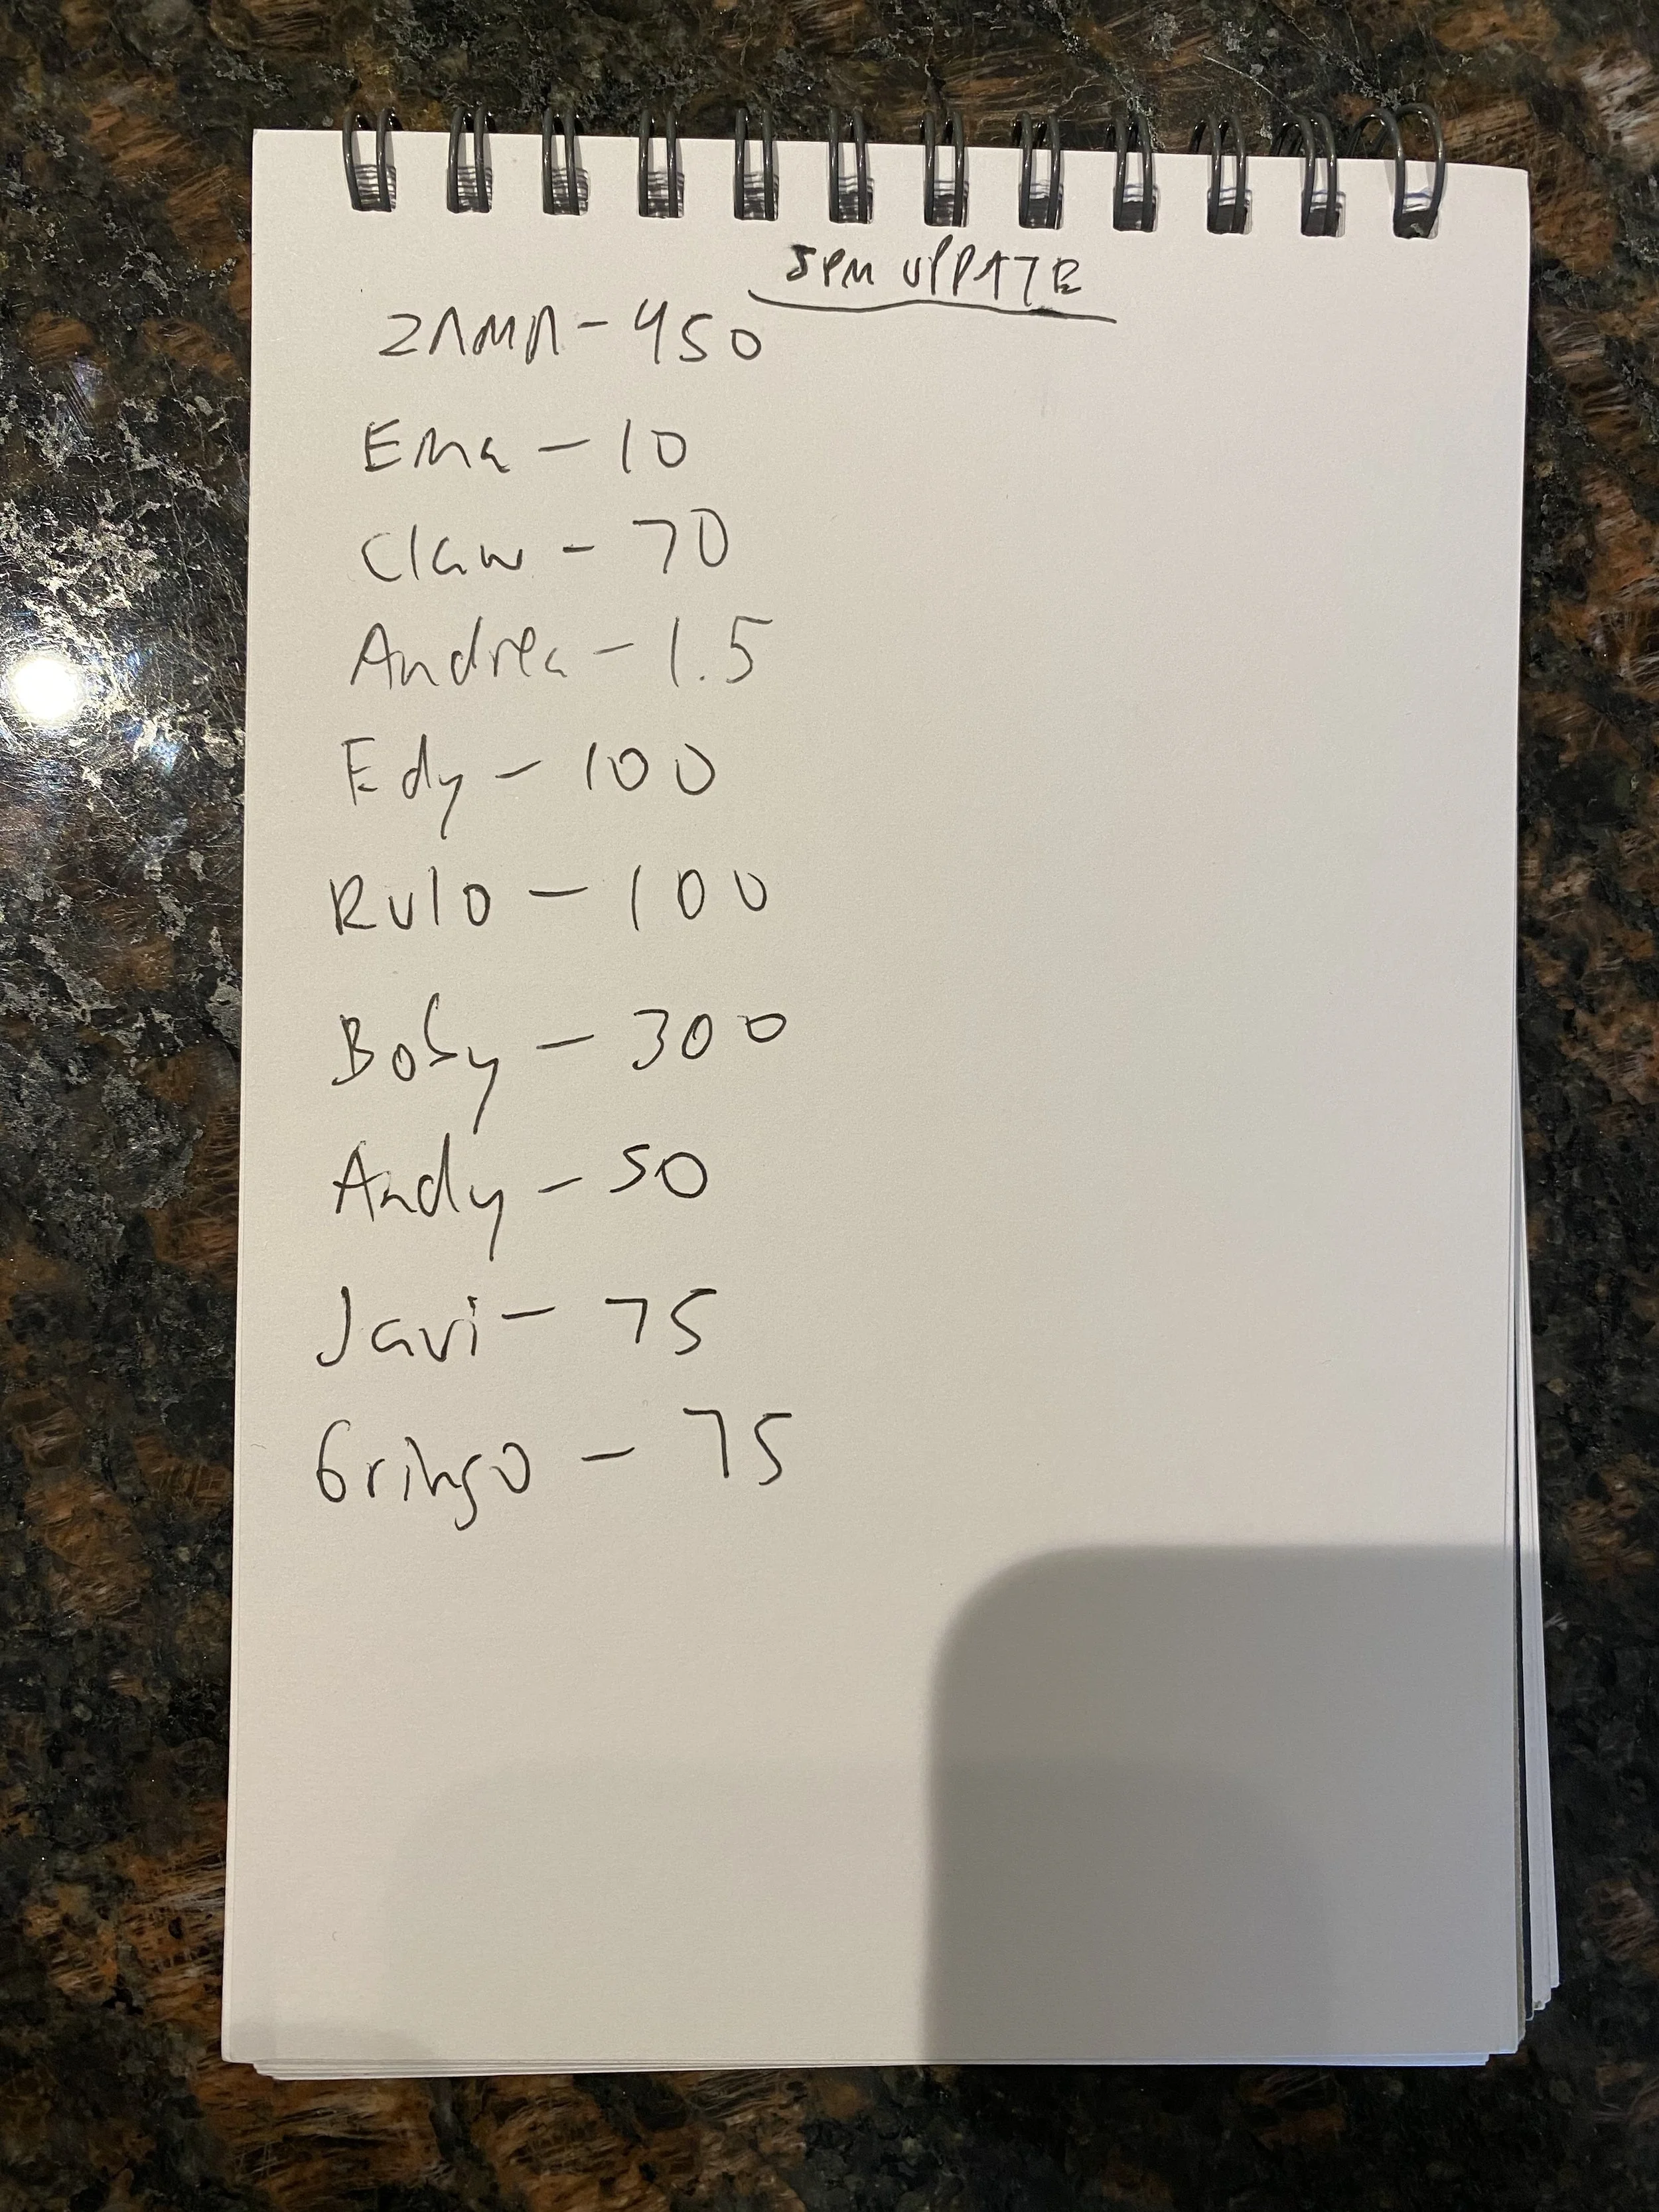 5PM UPDATE
ZAMA - 450
Ema - 10
Claw - 70
Andrea - 1.5
Edy - 100
Rulo - 100
Boby - 300
Andy - 50
Javi - 75
Gringo - 75